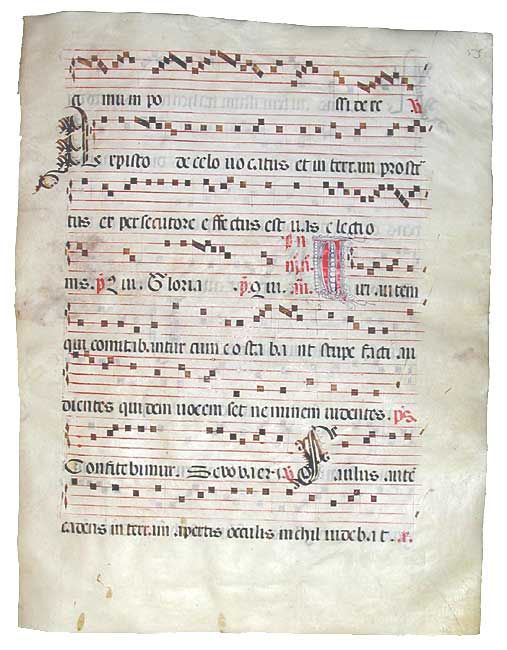 et mu in po ssi de re
A christo de celo uo catus et in terram prostra
tus ex per secutore e ffectus est uas e lectio
nis. Qui. Gloria. Qui. Uiri autem
qui comitabantur cum e o sta ba nt stupe facti au
dientes quidem uocem set ne minem uidentes. ps.
Confitebimur. Seuouae. Paulus autem
cadens in terram apertis occulis nichil uide ba t. R.